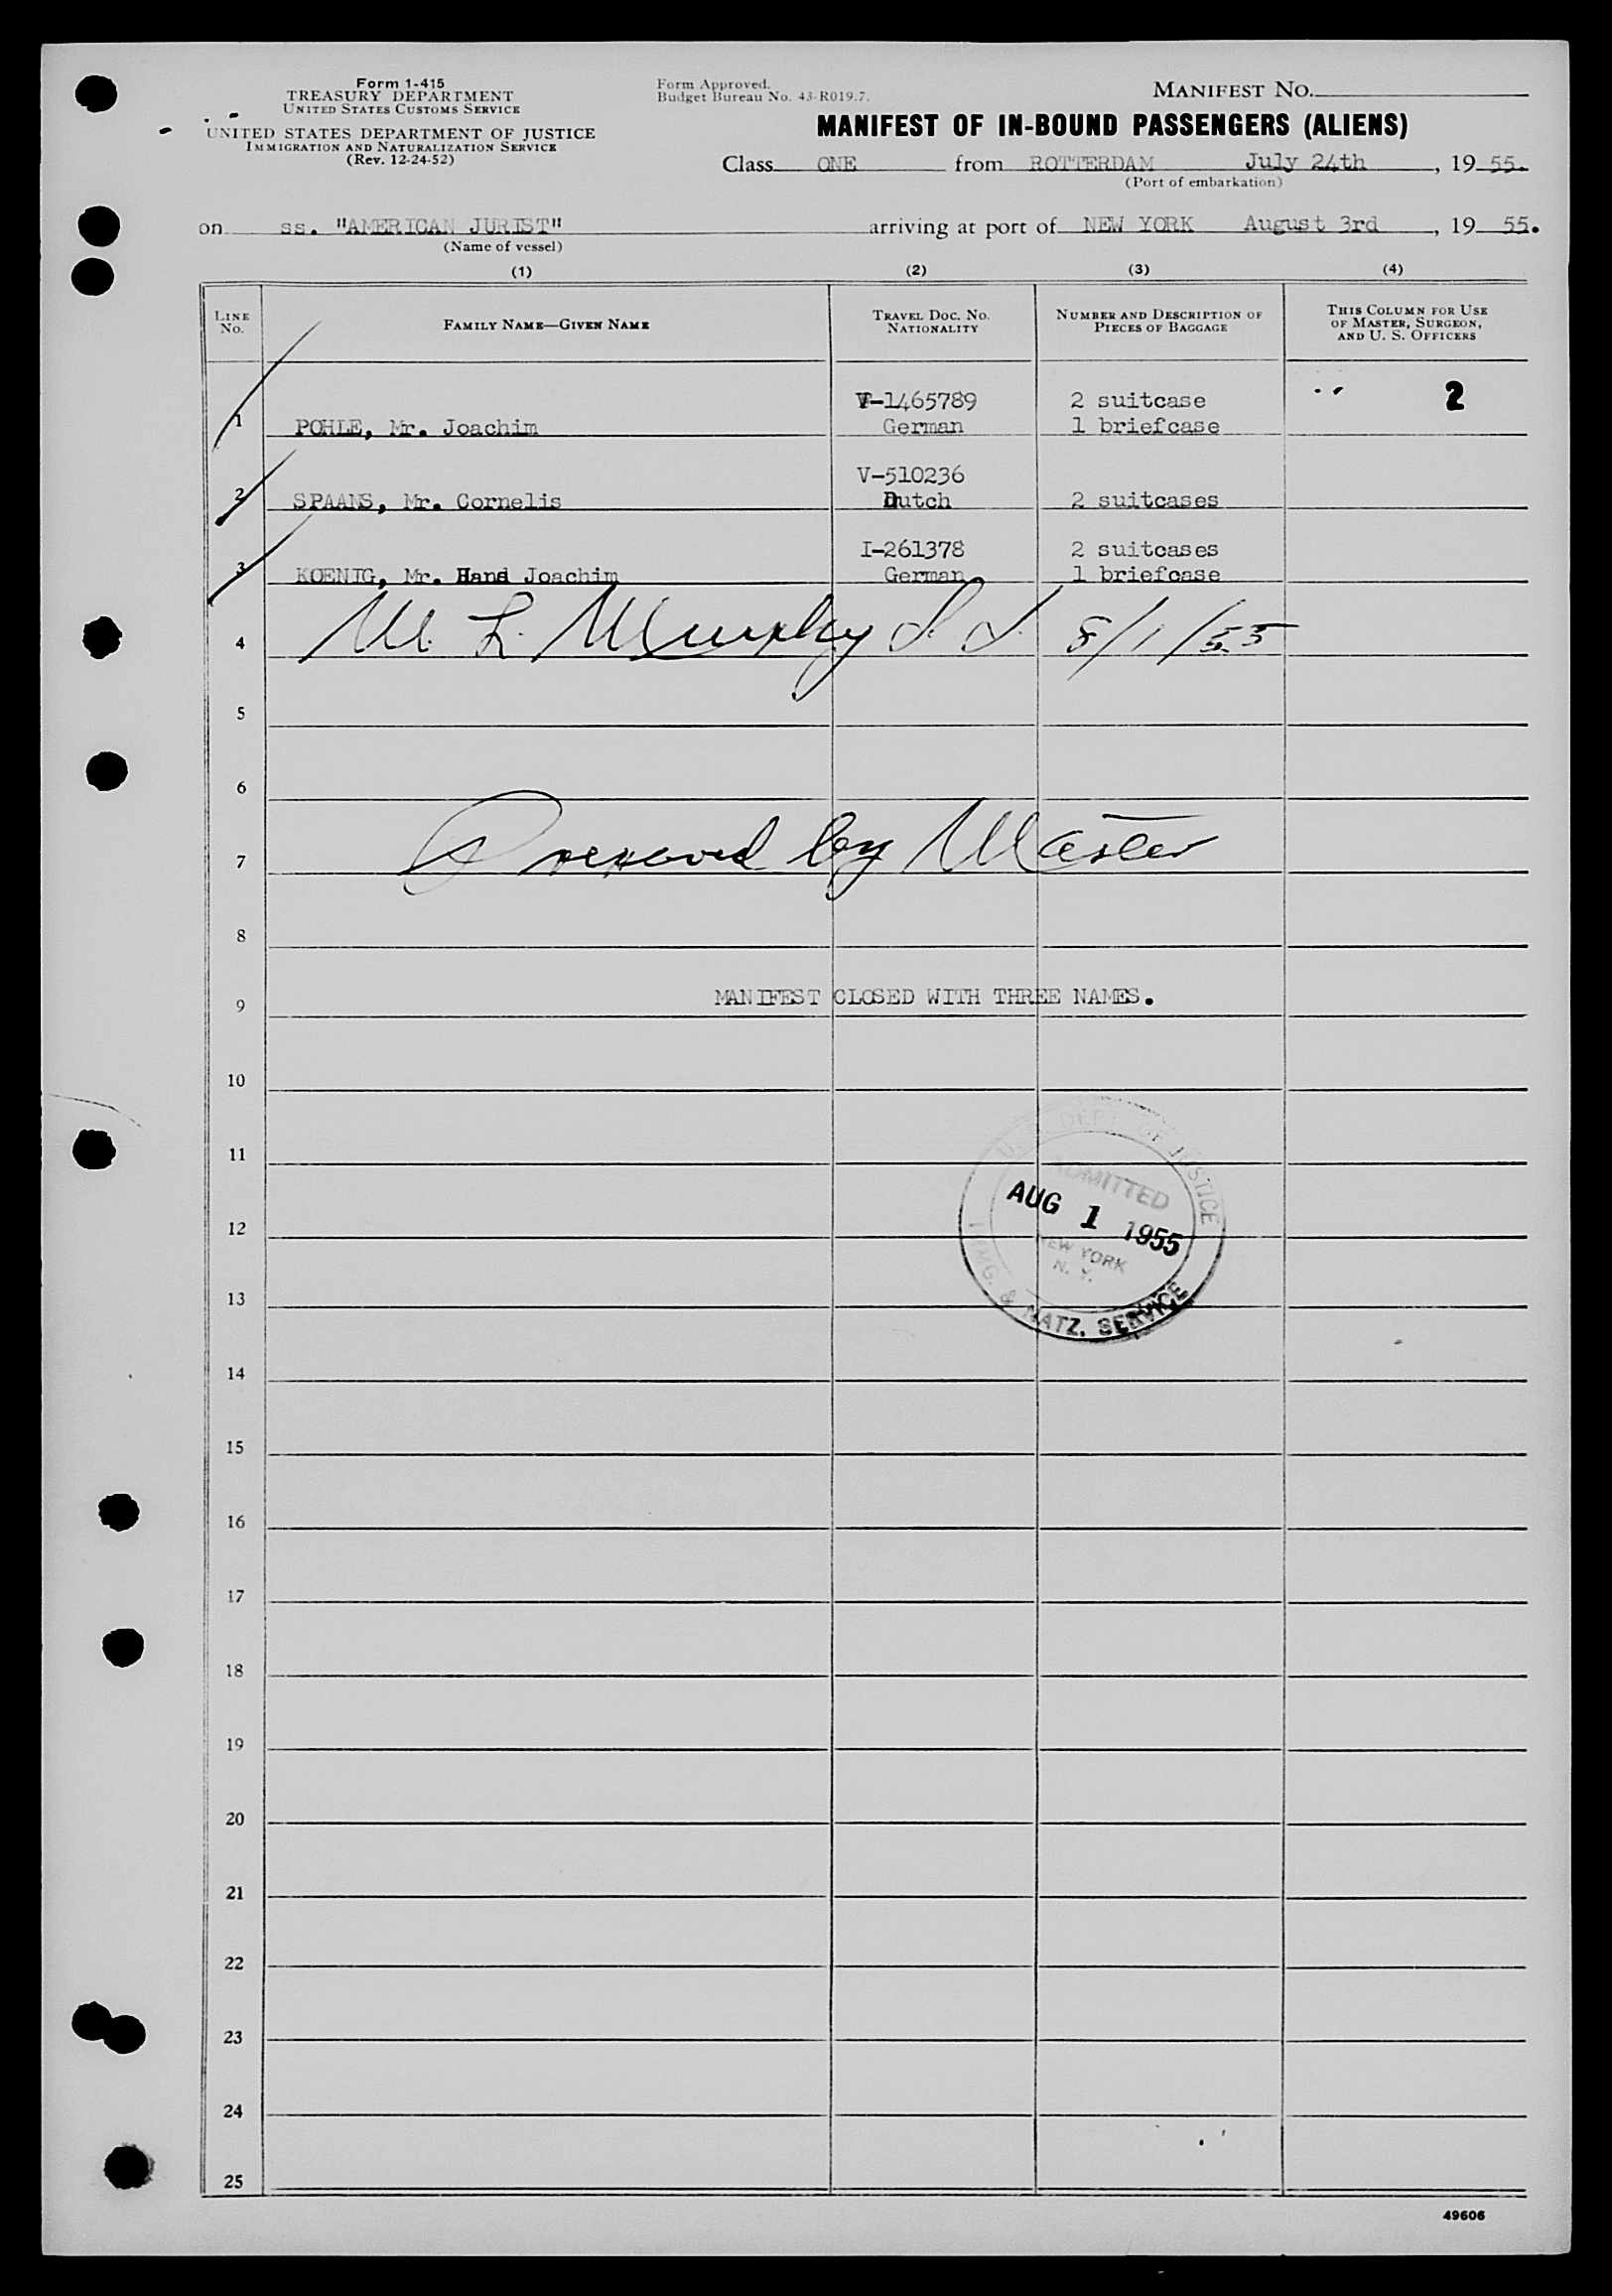 Form I-415
TREASURY DEPARTMENT
UNITED STATES CUSTOMS SERVICE
UNITED STATES DEPARTMENT OF JUSTICE
IMMIGRATION AND NATURALIZATION SERVICE
(Rev. 12-24-52)
Form Approved.
Budget Bureau No. 43-R019.7.
MANIFEST NO.
MANIFEST OF IN-BOUND PASSENGERS (ALIENS)
Class ONE from ROTTERDAM July 24th, 19 55.
(Port of embarkation)
on ss. "AMERICAN JURIST" arriving at port of NEW YORK August 3rd, 19 55.
(Name of vessel)
(1) (2) (3) (4)
LINE No. FAMILY NAME—GIVEN NAME TRAVEL DOC. NO. NATIONALITY NUMBER AND DESCRIPTION OF PIECES OF BAGGAGE THIS COLUMN FOR USE OF MASTER, SURGEON, AND U. S. OFFICERS
V-1465789 2 suitcase 2
1 POHLE, Mr. Joachim German 1 briefcase
V-510236
2 SPAANS, Mr. Cornelis Dutch 2 suitcases
I-261378 2 suitcases
3 KOENIG, Mr. Hans Joachim German 1 briefcase
4 M. L. Murphy 8/1/55
5
6
7 by Master
8
9 MANIFEST CLOSED WITH THREE NAMES.
10
11
12
13
14
15
16
17
18
19
20
21
22
23
24
25
U.S. DEPT. OF JUSTICE
ADMITTED
AUG 1 1955
NEW YORK
N. Y.
IMMG. & NATZ. SERVICE
49606